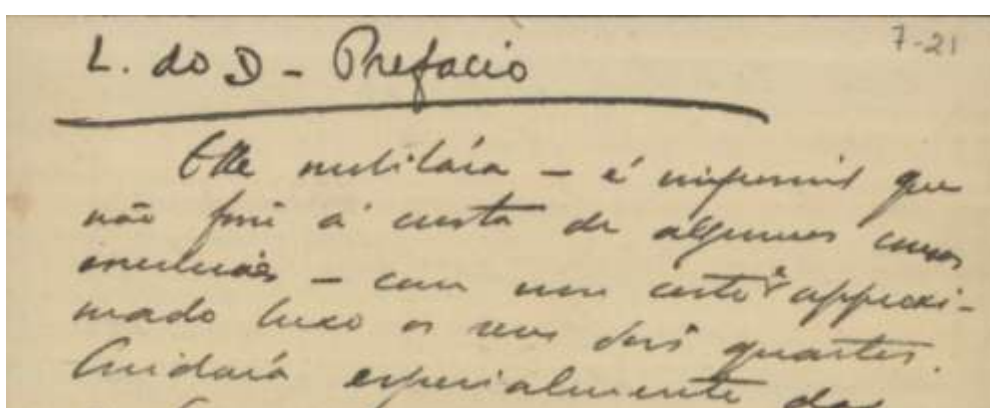 7-21
L. do D - Prefacio
Elle mobilára — é impossivel que
não fosse á custa de algumas cousas
essenciaes — com um certo e approxi-
mado luxo os seus dois quartos.
Cuidára especialmente das